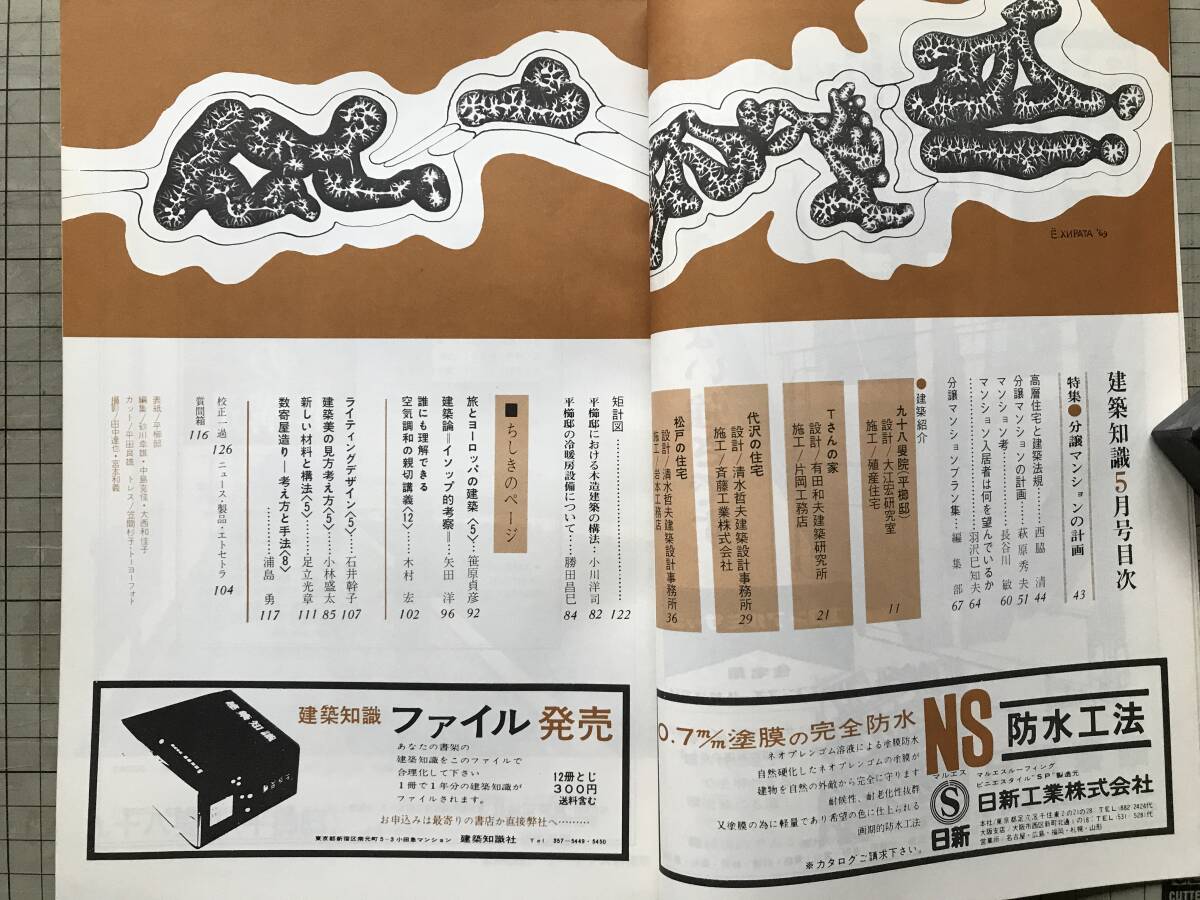 Ё.ХИРАТА '69
建築知識5月号目次
特集●分譲マンションの計画 43
高層住宅と建築法規……西脇 清 44
分譲マンションの計画……萩原秀夫 51
マンション考……長谷川 敏 60
マンション入居者は何を望んでいるか……羽沢巳知夫 64
分譲マンションプラン集……編集部 67
●建築紹介
九十八叟院(平櫛邸)
設計/大江宏研究室
施工/殖産住宅
11
Tさんの家
設計/有田和夫建築研究所
施工/片岡工務店
21
代沢の住宅
設計/清水哲夫建築設計事務所
施工/斉藤工業株式会社
29
松戸の住宅
設計/清水哲夫建築設計事務所
施工/岩本工務店
36
矩計図……122
平櫛邸における木造建築の構法…小川洋司 82
平櫛邸の冷暖房設備について……勝田昌巳 84
■ちしきのページ
旅とヨーロッパの建築〈5〉…笹原貞彦 92
建築論=イソップ的考察=…矢田 洋 96
誰にも理解できる
空気調和の親切講義〈12〉……木村 宏 102
ライティングデザイン〈5〉……石井幹子 107
建築美の見方考え方〈5〉……小林盛太 85
新しい材料と構法〈5〉……足立光章 111
数寄屋造り―考え方と手法〈8〉
……浦島 勇 117
校正一過 126 ニュース・製品・エトセトラ 104
質問箱 116
表紙/平櫛邸
編集/砂川幸雄・中島克佳・大西和佳子
カット/平田員雄 トレス/笠間杉子・トーヨーフォト
撮影/田中達也・宮本和義
建築知識
建築知識 ファイル 発売
あなたの書架の
建築知識をこのファイルで
合理化して下さい
1冊で1年分の建築知識が
ファイルされます。
12冊とじ
300円
送料含む
お申込みは最寄りの書店か直接弊社へ………
東京都新宿区南元町5-3小田急マンション 建築知識社 Tel 357-5449・5450
0.7m/m塗膜の完全防水
NS
防水工法
ネオプレンゴム溶液による塗膜防水
自然硬化したネオプレンゴムの塗膜が
建物を自然の外敵から完全に守ります
耐候性、耐老化性抜群
又塗膜の為に軽量であり希望の色に仕上られる
画期的防水工法
※カタログご請求下さい。
マルエス
S
日新
マルエスルーフィング
ビニエスタイル"SP"製造元
日新工業株式会社
本社/東京都足立区千住東2の21の28 TEL(882)2424代
大阪支店/大阪市西区新町北通1の18 TEL(531)5281代
営業所/名古屋・広島・福岡・札幌・山形
CUTTE